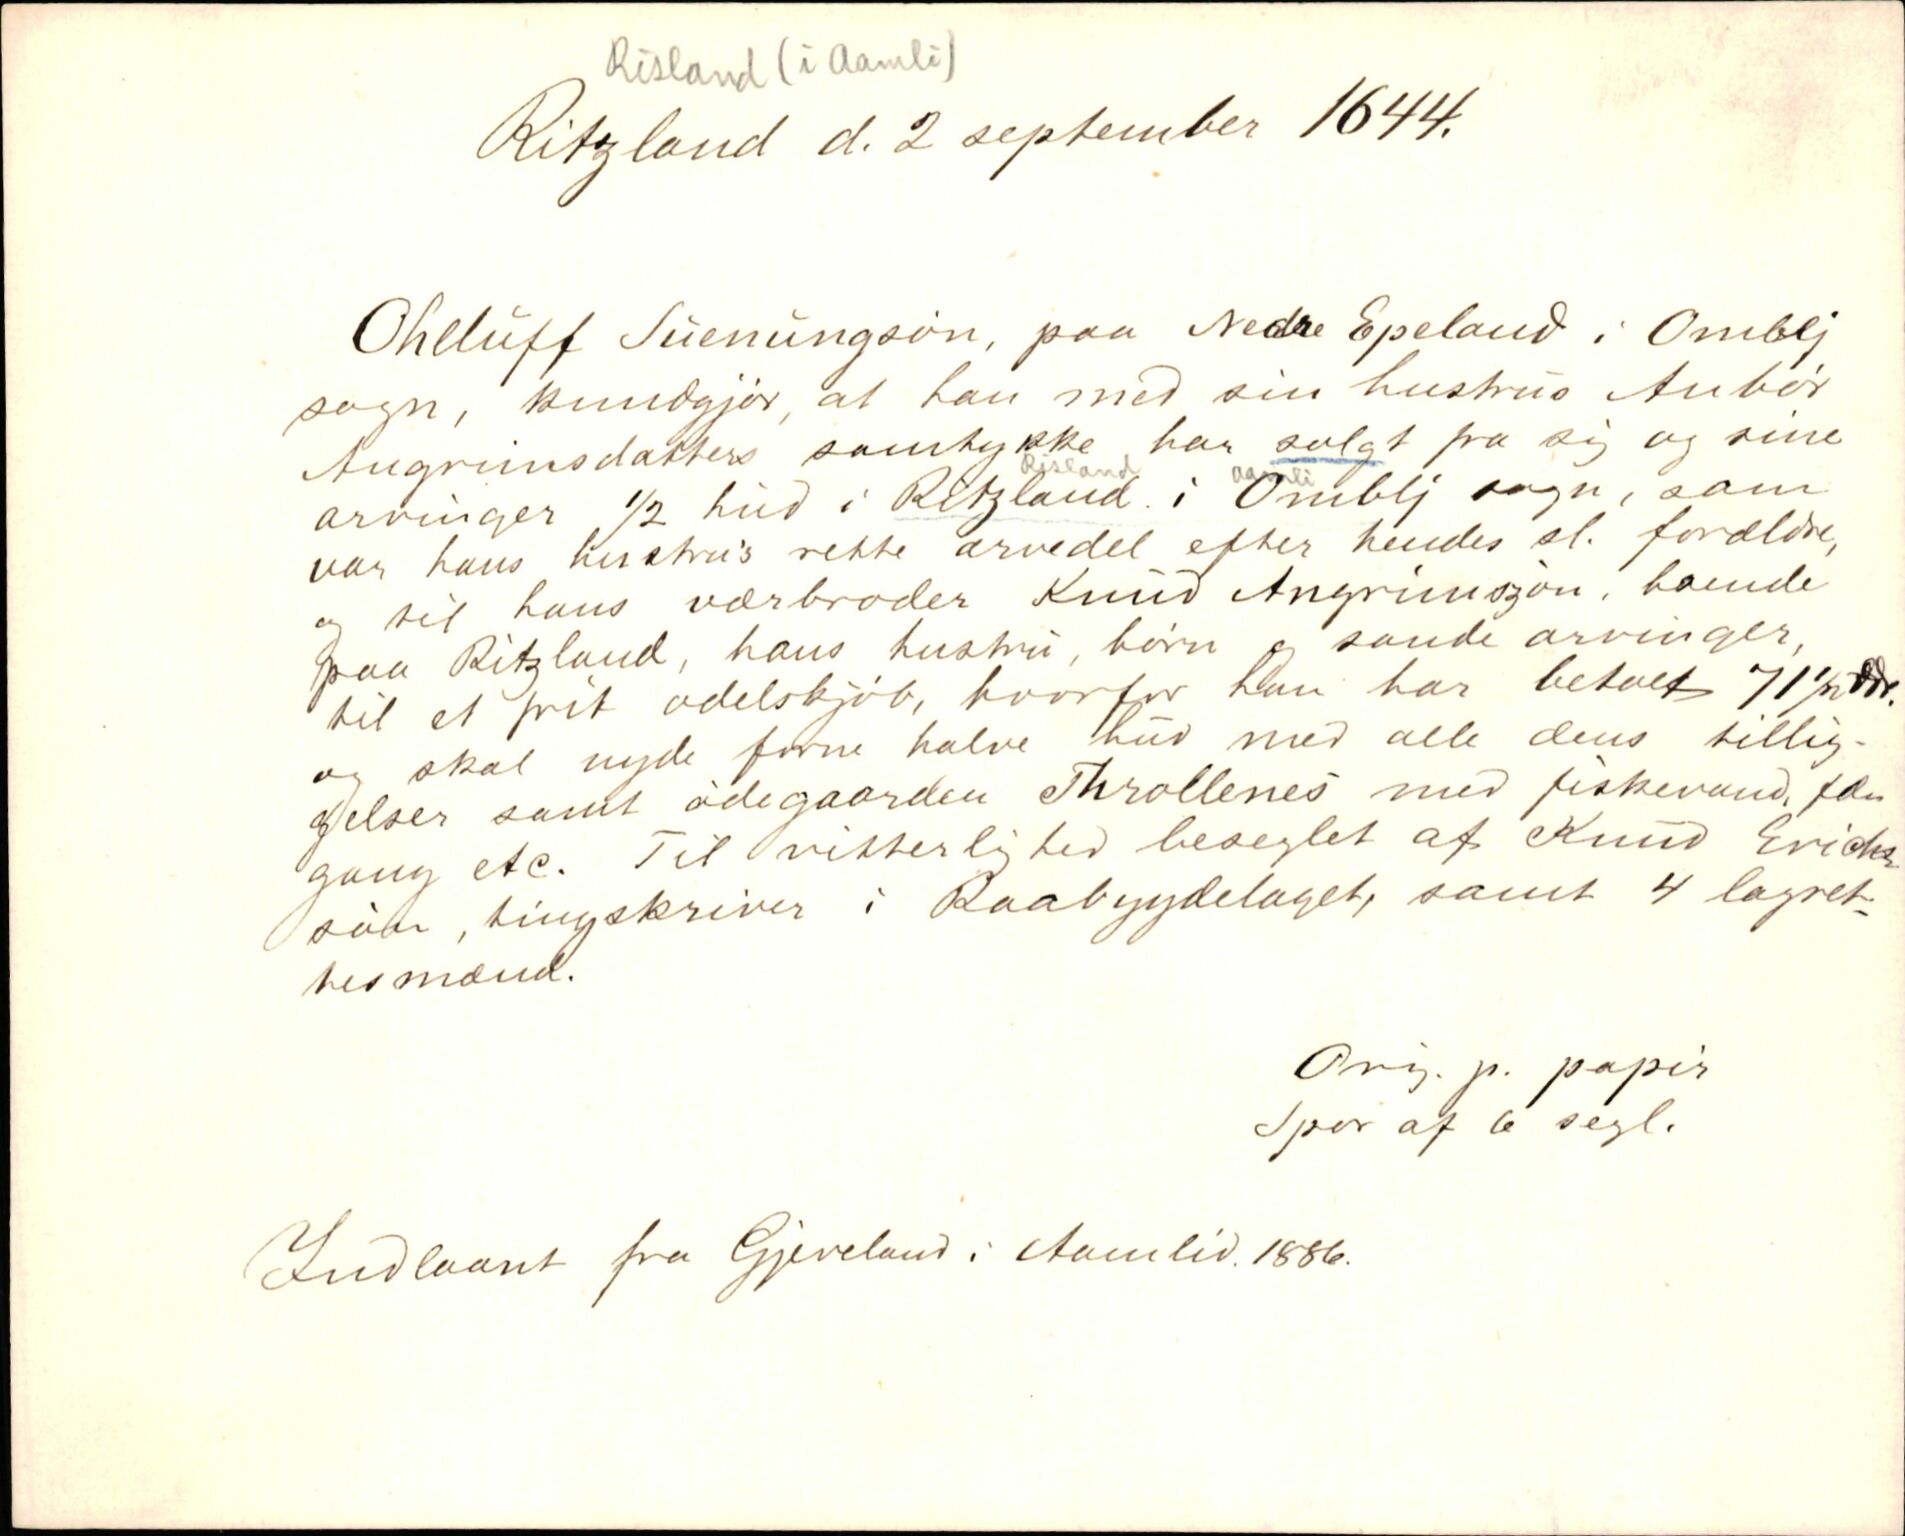 Risland (i Aamli)
Ritzland d. 2 september 1644.
Ohlluff Suenungsön, paa Nedre Epeland i Omblj
sogn, kundgjör, at han med sin hustrus Anbör
Angrimsdatters samtykke har solgt fra sig og sine
Risland Aamli
arvinger 1/2 hud i Ritzland i Omblj sogn, som
var hans hustru's rette arvedel efter hendes sl. forældre,
og til hans værbroder Knud Angrimszön, boende
paa Ritzland, hans hustru, börn og sande arvinger,
til et frit odelskjöb, hvorfor han har betalt 71 1/2 ddr.
og skal nyde forne halve hud med alle dens tillig-
gelser samt ödegaarden Throllenes med fiskevand, fæ
gang etc. Til vitterlighed beseglet af Knud Erichs-
sön, tingskriver i Raabygdelaget, samt 4 lagret-
tesmænd.
Orig. p. papir
Spor af 6 segl.
Indlaant fra Gjeveland i Aamlid. 1886.